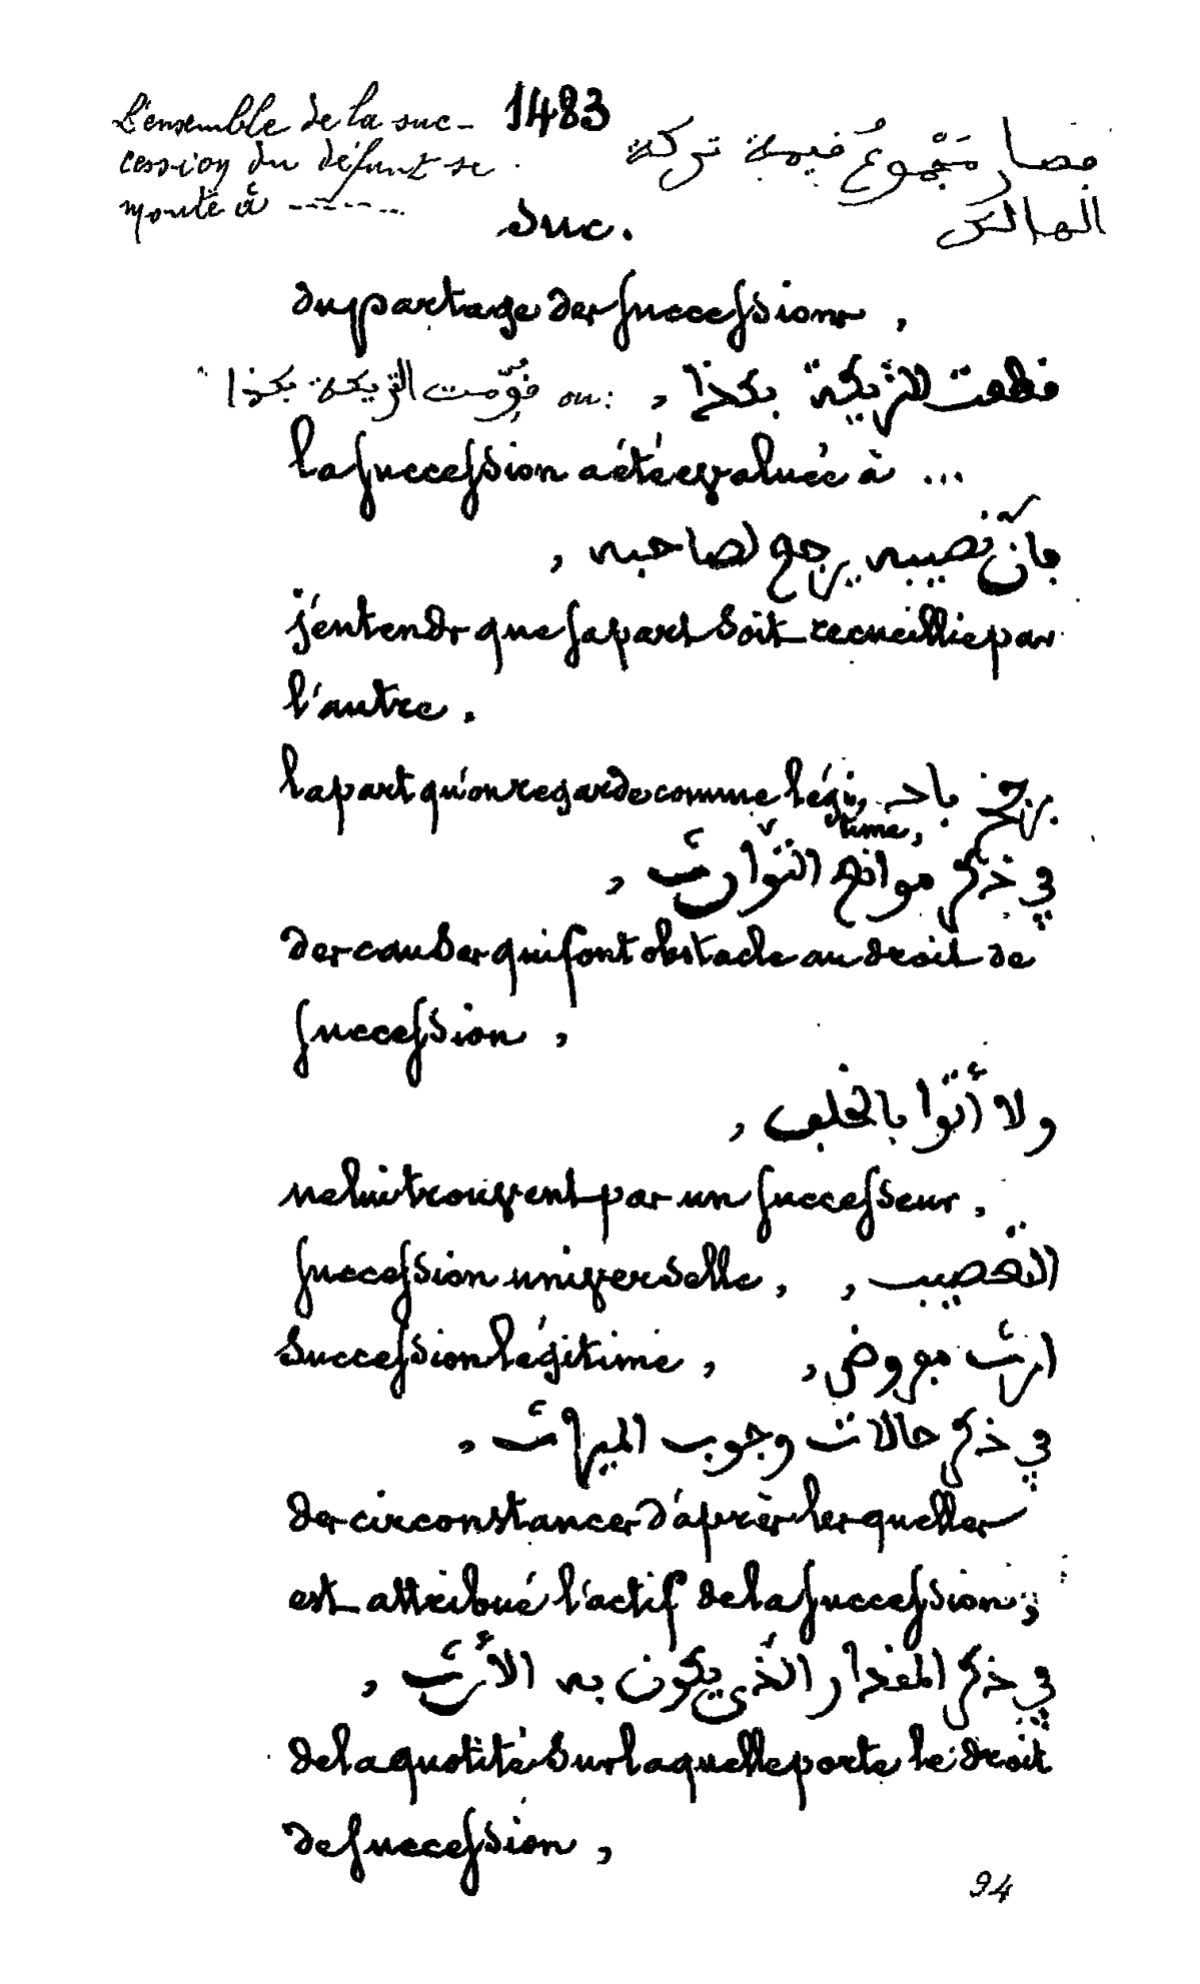 1483
L'ensemble de la suc-
cession du défunt se
monte à -------...
فصار مَجْموعُ قيمة تركة
الهالك
Suc.
du partage des successions,
قطعت التريكة بكذا, ou: قوّمت التريكة بكذا
la succession a été evaluée à ...
بأنّ نصيبه يرجع لصاحبه,
j'entends que sa part soit recueillie par
l'autre.
la part qu'on regarde comme légi,
time,
في ذكر موانع التّوارث,
des causes qui font obstacle au droit de
succession,
ولا أتوا بالخلف,
ne lui trouvent par un successeur.
succession universelle, التعصيب,
succession légitime, ارث مفروض,
في ذكر حالات وجوب الميراث,
des circonstances d'après lesquelles
est attribué l'actif de la succession,
في ذكر المقدار الذّي يكون به الأرث,
de la quotité sur laquelle porte le droit
de succession,
94